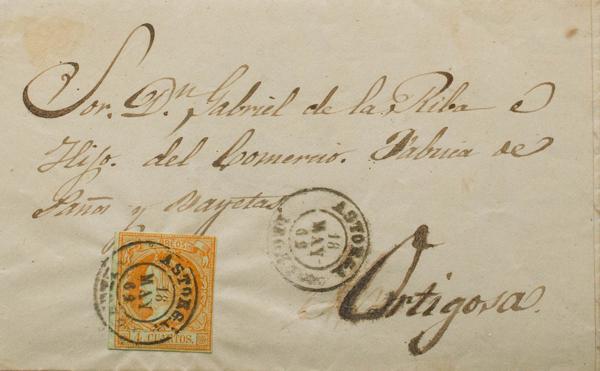 Sor. Dn Gabriel de la Riba e
Hijo. del Comercio. Fabrica de
Paños y Bayetas
Ortigosa.
ASTORGA
18
MAY
62
CORREOS
4 CUARTOS.
ASTORGA
18
MAY
62